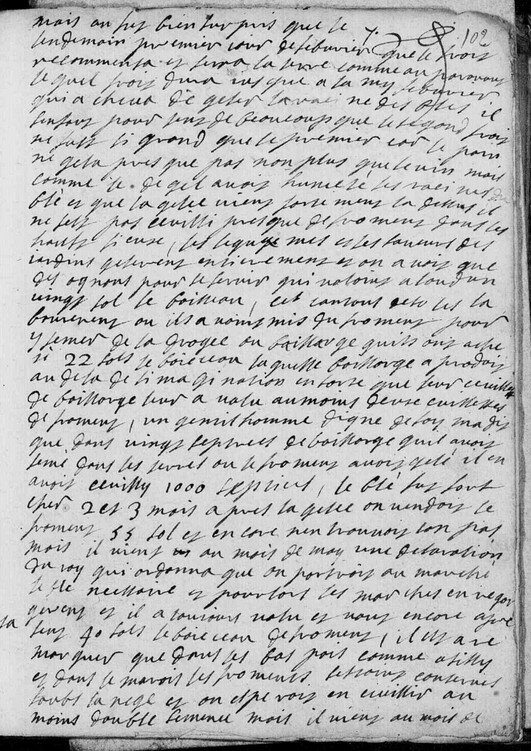 mais on fut bien surpris que le
lendemain premier jour de febvrier que le froid
recommensa et serra la terre comme au paravant
lequel froid dura jusque a la my febvrier
qui acheva de geler la racine des bles il
faut pour tant de beaucoup que le segond froid
ne fust si grand que le premier car le pain
ne gela presque pas non plus que le vin mais
comme le degel avoit humecte les racines du
blé et que la gelee vient fortement la dessus il
ne fust pas ceuilli presque de froment dans les
hauts lieux, les legumes et les
jardins gelerent entierement et on avoit que
des ognons pour se servir qui valoint a Loudun
vingt sol le boiceau, cet
ou ils avoint mis du froment pour
y semer de la drogee ou baillorge quils ont achepté
22 sols le boiceau laquelle baillorge a produit
au dela de limagination en sorte que leur
de baillorge leur a valu au moins deux
de froment, un gentilhomme digne de foy ma dit
que dans vingt septrees de baillorge quil avoit
semé dans les terres ou le froment avoit gelé il en
avoit ceuilly 1000 septiers, le blé fut fort
cher 2 et 3 mois apres la gelee on vendoit le
froment 55 sol et encore nen trouvoit lon pas
mais il vient au mois de may une declaration
du roy qui ordonna que on portroit au marché
le blé necessaire et pour lors les marches en
et il a toujours valu et vaut encore
40 sols le boiceau de froment, il est a re
marquer que dans les bas pais comme
et dans le marois les froments
toubs la nege et on esperoit en ceuillir au
moins double semence mais il vient au mois de